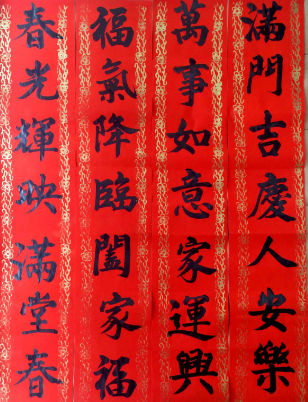 滿門吉慶人安樂
萬事如意家運興
福氣降臨闔家福
春光輝映滿堂春